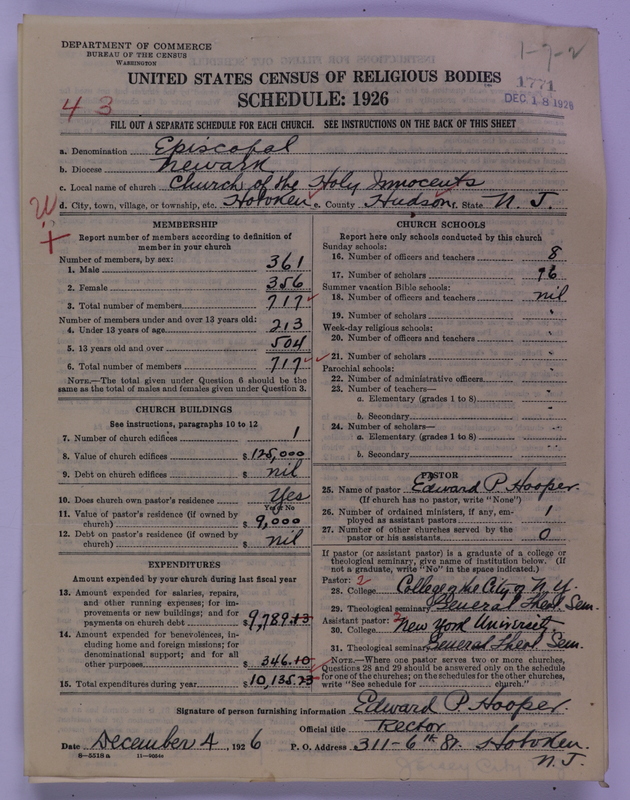 DEPARTMENT OF COMMERCE
BUREAU OF THE CENSUS
WASHINGTON
1-7-2
UNITED STATES CENSUS OF RELIGIOUS BODIES
SCHEDULE: 1926
1771
DEC 18 1926
43
FILL OUT A SEPARATE SCHEDULE FOR EACH CHURCH. SEE INSTRUCTIONS ON THE BACK OF THIS SHEET
a. Denomination Episcopal
b. Diocese Newark
c. Local name of church Church of the Holy Innocents
d. City, town, village, or township, etc. Hoboken e. County Hudson f. State N. J.
MEMBERSHIP
Report number of members according to definition of
member in your church
Number of members, by sex:
1. Male 361
2. Female 356
3. Total number of members 717
Number of members under and over 13 years old:
4. Under 13 years of age 213
5. 13 years old and over 504
6. Total number of members 717
NOTE.—The total given under Question 6 should be
same as the total of males and females given under Question 3.
CHURCH BUILDINGS
See instructions, paragraphs 10 to 12
7. Number of church edifices 1
8. Value of church edifices $125,000
9. Debt on church edifices $ nil
10. Does church own pastor's residence Yes
Yes or No
11. Value of pastor's residence (if owned by
church) $9,000
12. Debt on pastor's residence (if owned by
church) $ nil
EXPENDITURES
Amount expended by your church during last fiscal year
13. Amount expended for salaries, repairs,
and other running expenses; for im-
provements or new buildings; and for
payments on church debt $9,789.13
14. Amount expended for benevolences, in-
cluding home and foreign missions; for
denominational support; and for all
other purposes $346.10
15. Total expenditures during year $10,135.23
CHURCH SCHOOLS
Report here only schools conducted by this church
Sunday schools:
16. Number of officers and teachers 8
17. Number of scholars 96
Summer vacation Bible schools:
18. Number of officers and teachers nil
19. Number of scholars
Week-day religious schools:
20. Number of officers and teachers
21. Number of scholars
Parochial schools:
22. Number of administrative officers
23. Number of teachers—
a. Elementary (grades 1 to 8)
b. Secondary
24. Number of scholars—
a. Elementary (grades 1 to 8)
b. Secondary
PASTOR
25. Name of pastor Edward P. Hooper.
(If church has no pastor, write "None")
26. Number of ordained ministers, if any, em-
ployed as assistant pastors 1
27. Number of other churches served by the
pastor or his assistants 0
If pastor (or assistant pastor) is a graduate of a college or
theological seminary, give name of institution below. (If
not a graduate, write "No" in the space indicated.)
Pastor: 2
28. College College of the City of N. Y.
29. Theological seminary General Theol. Sem.
Assistant pastor: 2
30. College New York University
31. Theological seminary General Theol. Sem.
NOTE.—Where one pastor serves two or more churches,
Questions 28 and 29 should be answered only on the schedule
for one of the churches; on the schedules for the other churches,
write "See schedule for church."
Signature of person furnishing information Edward P Hooper.
Official title Rector
Date December 4, 1926 P. O. Address 311-6th St. Hoboken.
N. J.
8-5518a